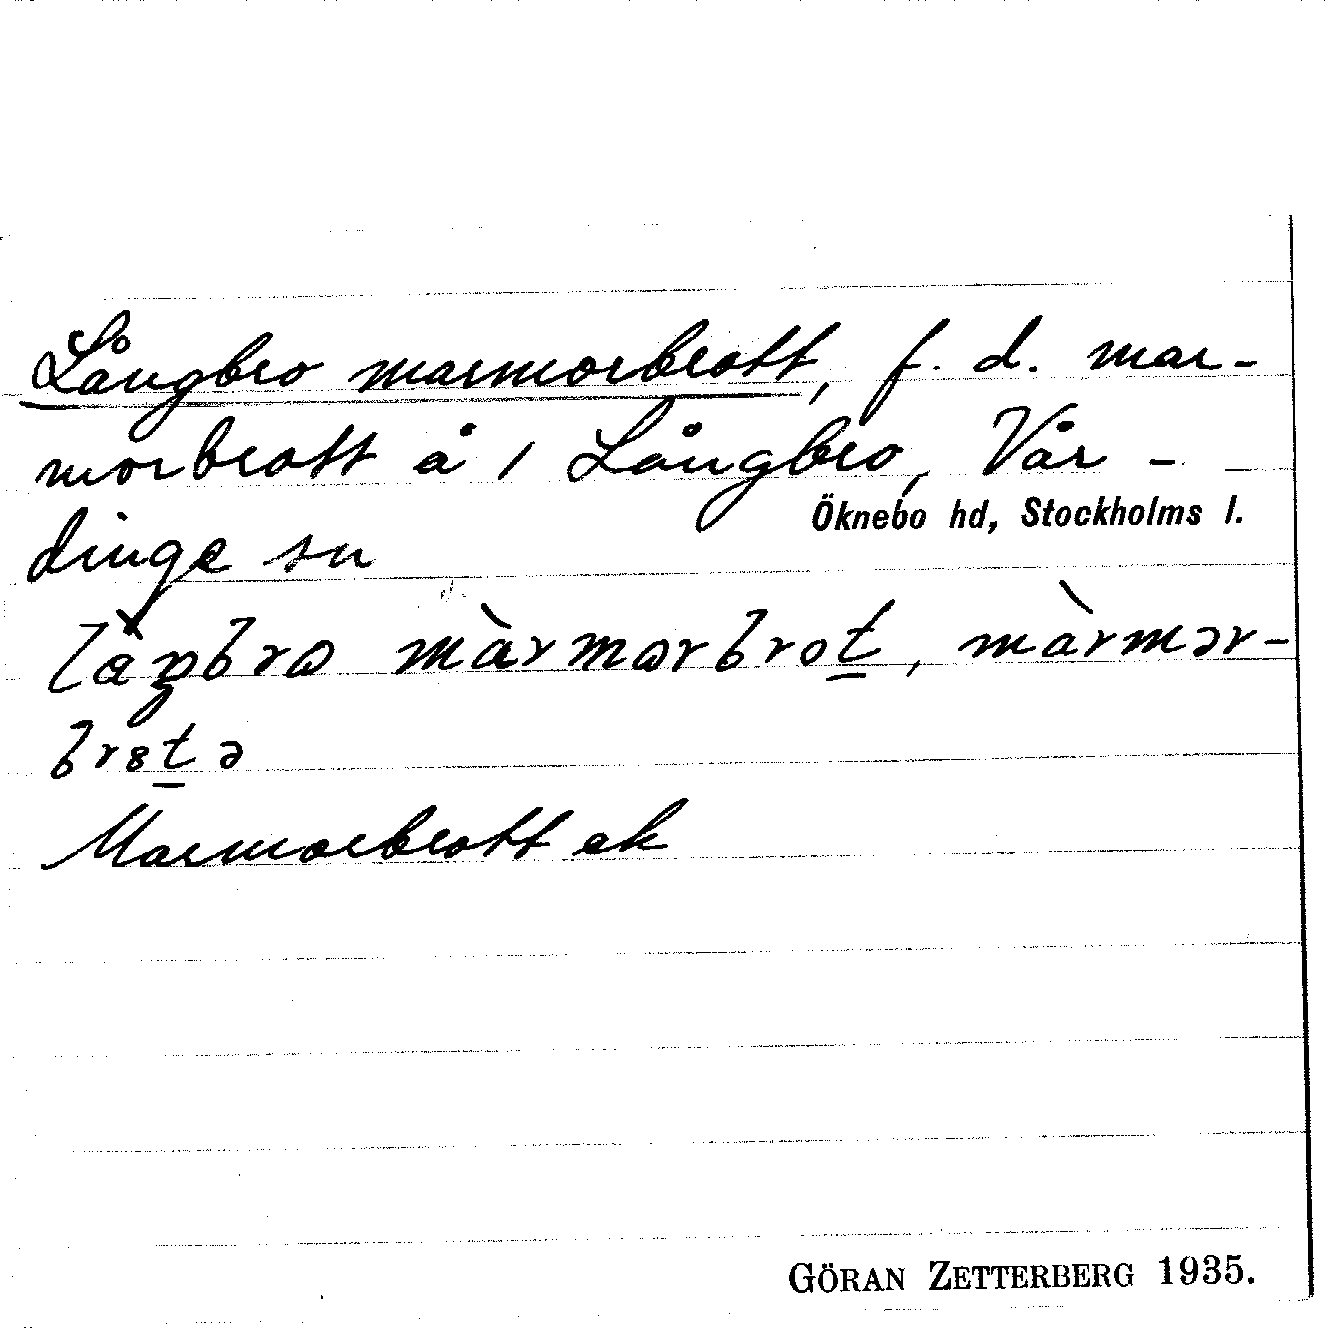 Långbro marmorbrott, f. d. mar-
morbrott å 1 Långbro, Vår-
Öknebo hd, Stockholms l.
dinge sn
làŋbrω màrmωrbrot̲, màrmər-
br8t̲ə
Marmorbrott ek
GÖRAN ZETTERBERG 1935.